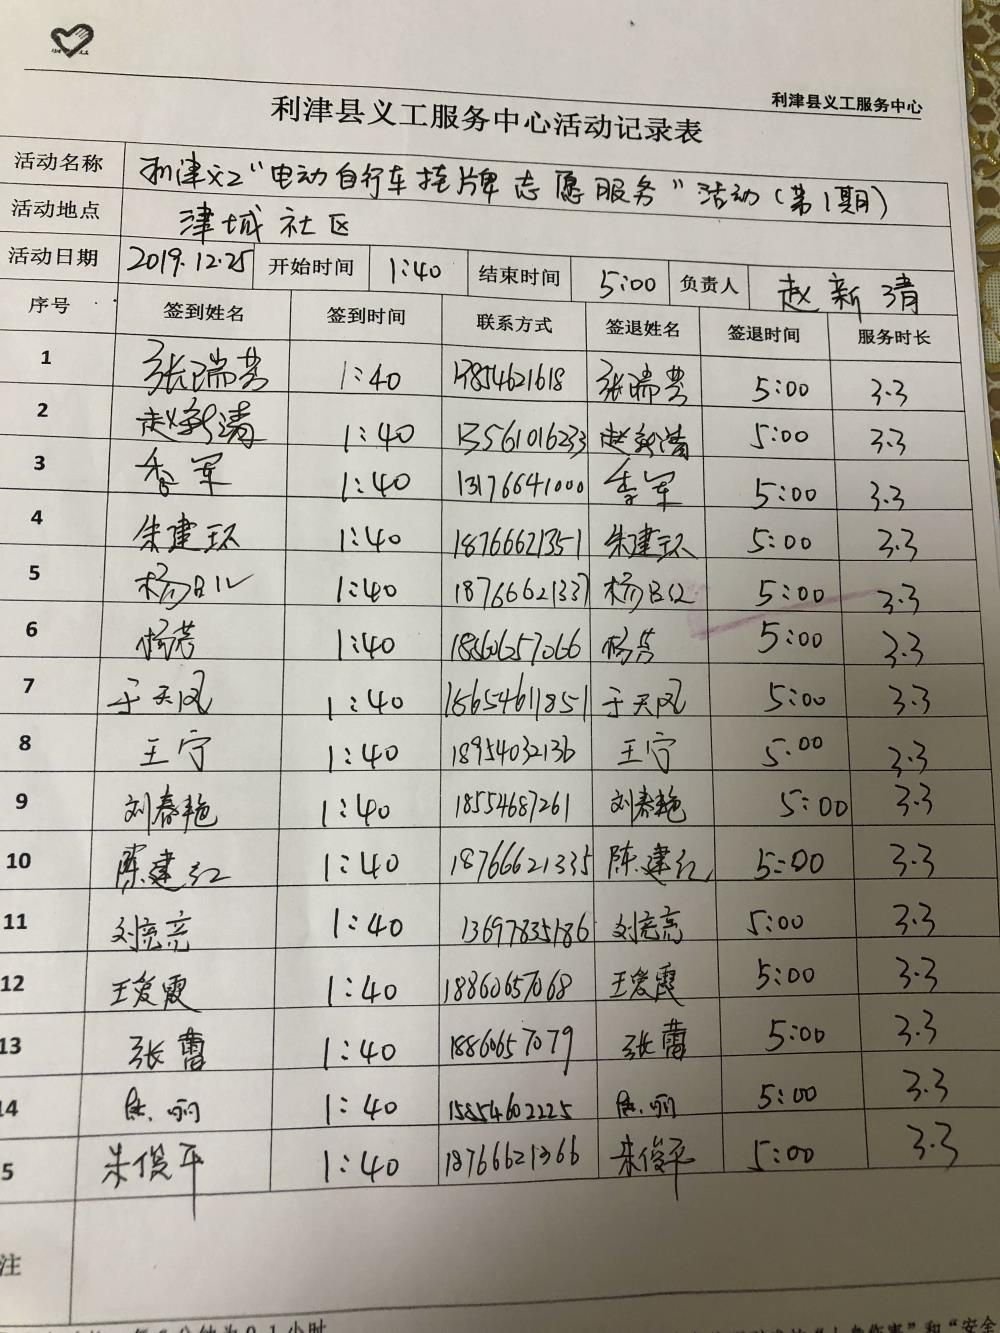 利津县义工服务中心
利津县义工服务中心活动记录表
活动名称 利津义工"电动自行车挂牌志愿服务"活动(第1期)
活动地点 津城社区
活动日期 2019.12.25 开始时间 1:40 结束时间 5:00 负责人 赵新清
序号 签到姓名 签到时间 联系方式 签退姓名 签退时间 服务时长
1 张瑞芳 1:40 13854621618 张瑞芳 5:00 3.3
2 赵新清 1:40 13561016233 赵新清 5:00 3.3
3 李军 1:40 13176641000 李军 5:00 3.3
4 朱建环 1:40 18766621351 朱建环 5:00 3.3
5 1:40 18766621337 5:00 3.3
6 杨芳 1:40 杨芳 5:00 3.3
7 于天凤 1:40 15654611851 于天凤 5:00 3.3
8 王宁 1:40 18954032136 王宁 5:00 3.3
9 刘春艳 1:40 18554687261 刘春艳 5:00 3.3
10 陈建红 1:40 18766621335 陈建红 5:00 3.3
11 刘亮亮 1:40 13697835186 刘亮亮 5:00 3.3
12 王爱霞 1:40 18860657068 王爱霞 5:00 3.3
13 张蕾 1:40 18860657079 张蕾 5:00 3.3
14 1:40 15854602225 5:00 3.3
5 朱俊平 1:40 18766621366 朱俊平 5:00 3.3
注